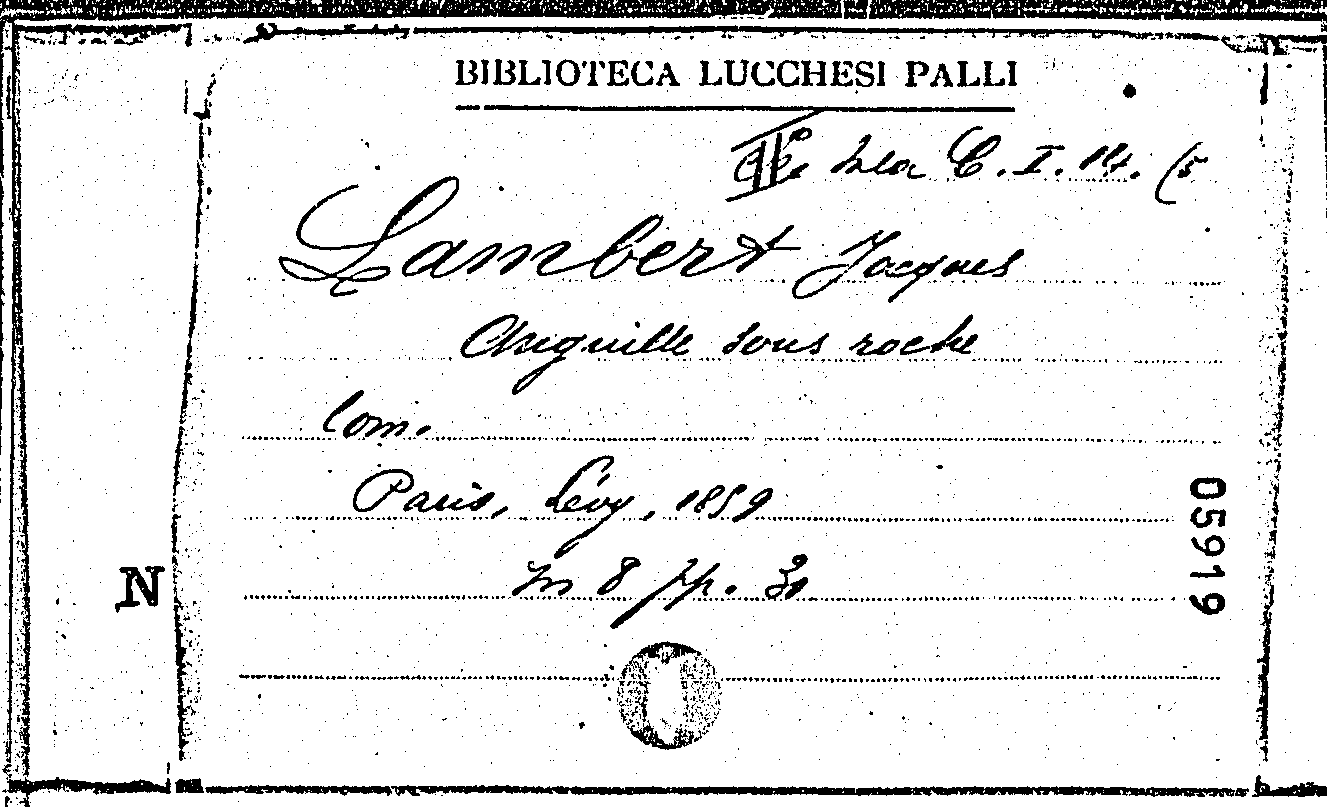 BIBLIOTECA LUCCHESI PALLI
C. I. 14. (5
Lambert Jacques
Anguille sous roche
Com.
Paris, Lévy, 1859
in 8 pp. 30
05919
N